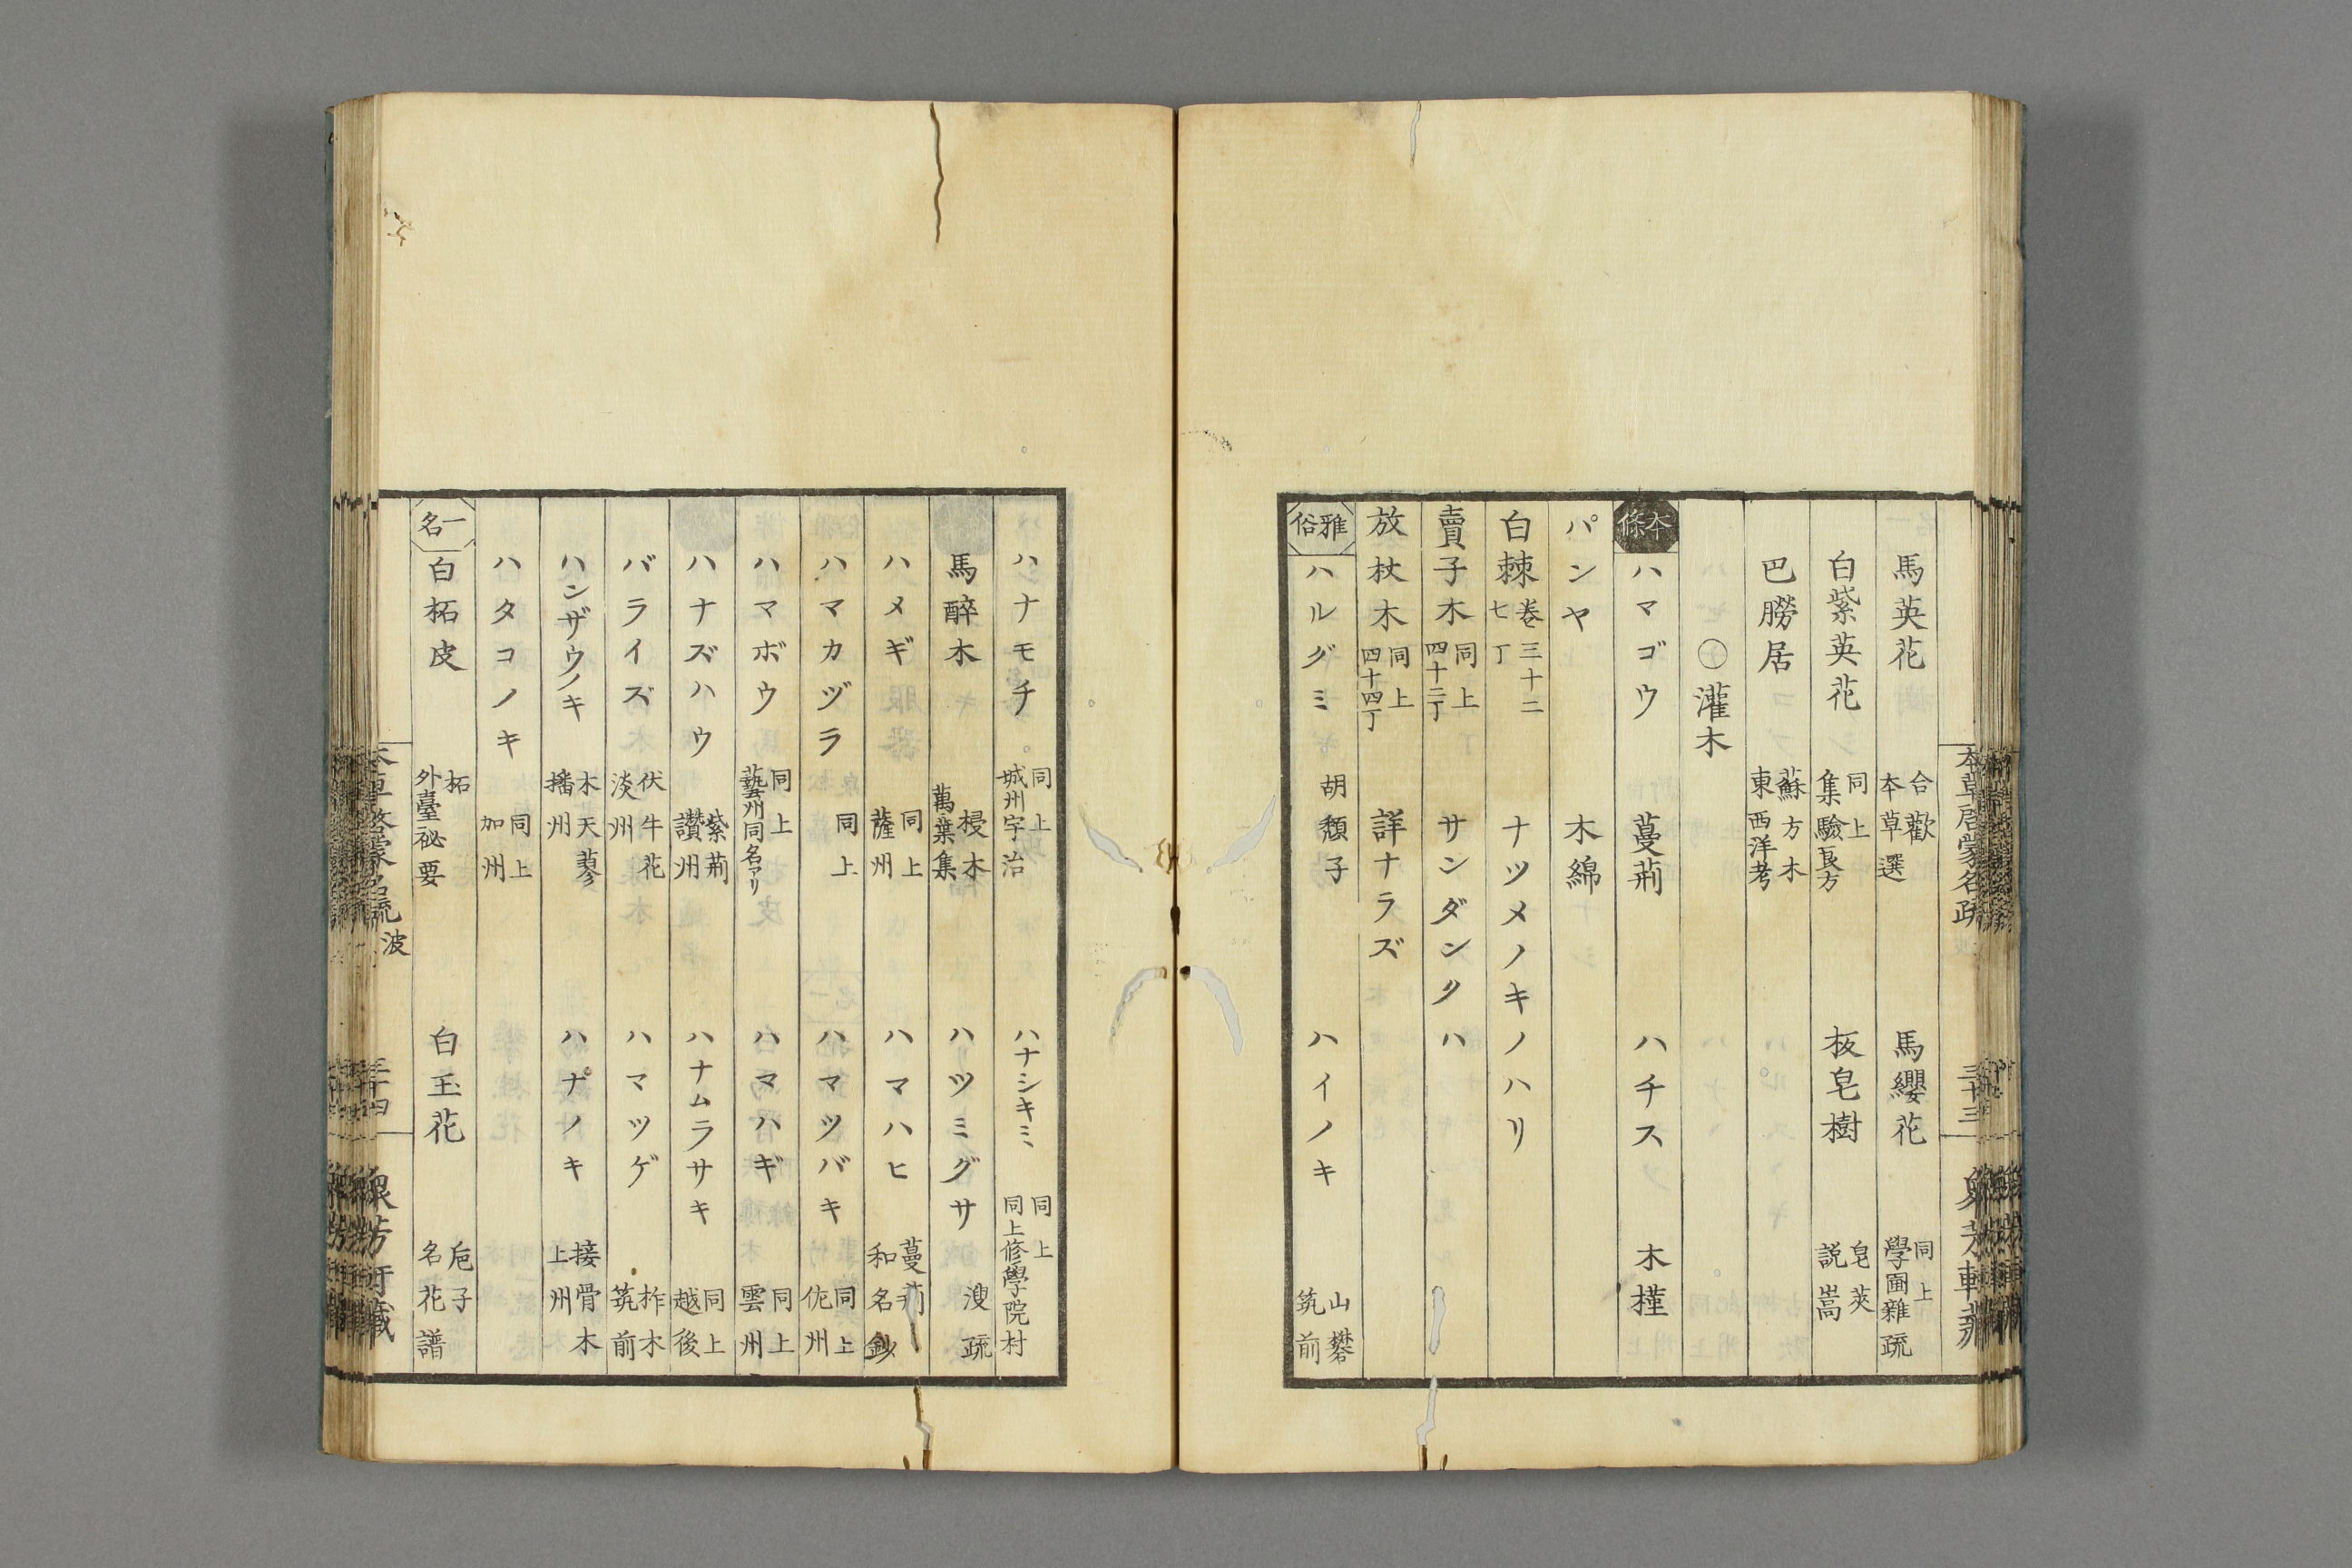 馬英花 合歡 本草選 馬纓花 同上 學圃雜疏
白紫英花 同上 集驗良方 板皂樹 皂莢 説嵩
巴膀居 蘇方木 東西洋考
○灌木
本條 ハマゴウ 蔓荊 ハチス 木槿
パンヤ 木綿
白棘 卷三十二 七丁 ナツメノキノハリ
賣子木 同上 四十二丁 サンダンクハ
放杖木 同上 四十四丁 詳ナラズ
雅俗 ハルグミ 胡頽子 ハイノキ 山礬 筑前
本草啓蒙名疏 三十三
ハナモチ 同上 城州宇治 ハナシキミ 同上 同上修學院村
馬醉木 梫木 萬葉集 ハツミグサ 溲疏
ハメギ 同上 薩州 ハマハヒ 蔓荊 和名鈔
ハマカヅラ 同上 ハマツバキ 同上 佐州
ハマボウ 同上 藝州同名アリ ハマハギ 同上 雲州
ハナズハウ 紫荊 讃州 ハナムラサキ 同上 越後
バライズ 伏牛花 淡州 ハマツゲ 柞木 筑前
ハンザウノキ 木天蓼 播州 ハナノキ 接骨木 上州
ハタコノキ 同上 加州
一名 白柘皮 柘 外臺祕要 白玉花 巵子 名花譜
本草啓蒙名疏 波 三十四